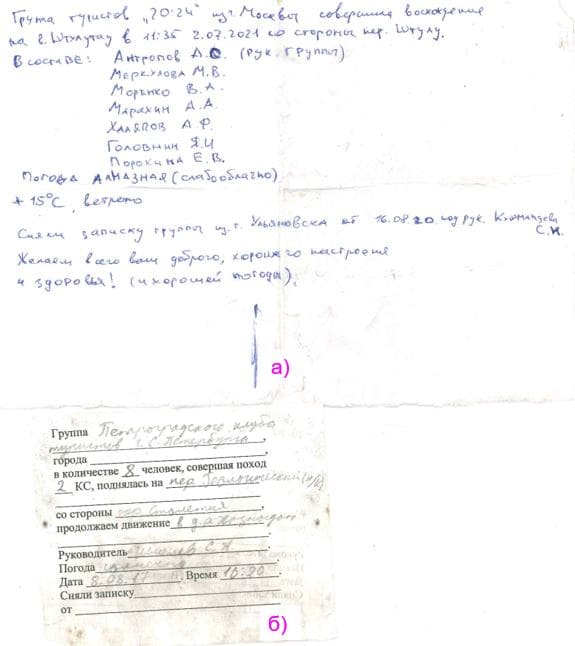 Группа туристов „20-24" из г. Москвы совершила восхождение
на в. Штулутау в 11:35 2.07.2021 со стороны пер. Штулу.
В составе: Антропов А.С. (рук. группы)
Меркулова М.В.
Моренко В.А.
Марахин А.А.
Халяпов А.Ф.
Головнин Я.И
Порохина Е.В.
Погода алмазная (слабооблачно)
+15°C, ветрено
Сняли записку группы из г. Ульяновска от 16.08.20 под рук.
С.И.
Желаем всего вам доброго, хорошего настроения
и здоровья! (и хорошей погоды).
а)
Группа Петроградского клуба
туристов г. С. Петербург,
города
в количестве 8 человек, совершая поход
2 КС, поднялась на пер.
со стороны
продолжаем движение в д.р.
Руководитель С.Н
Погода
Дата 8.08.17. Время 10:20.
Сняли записку
от
б)